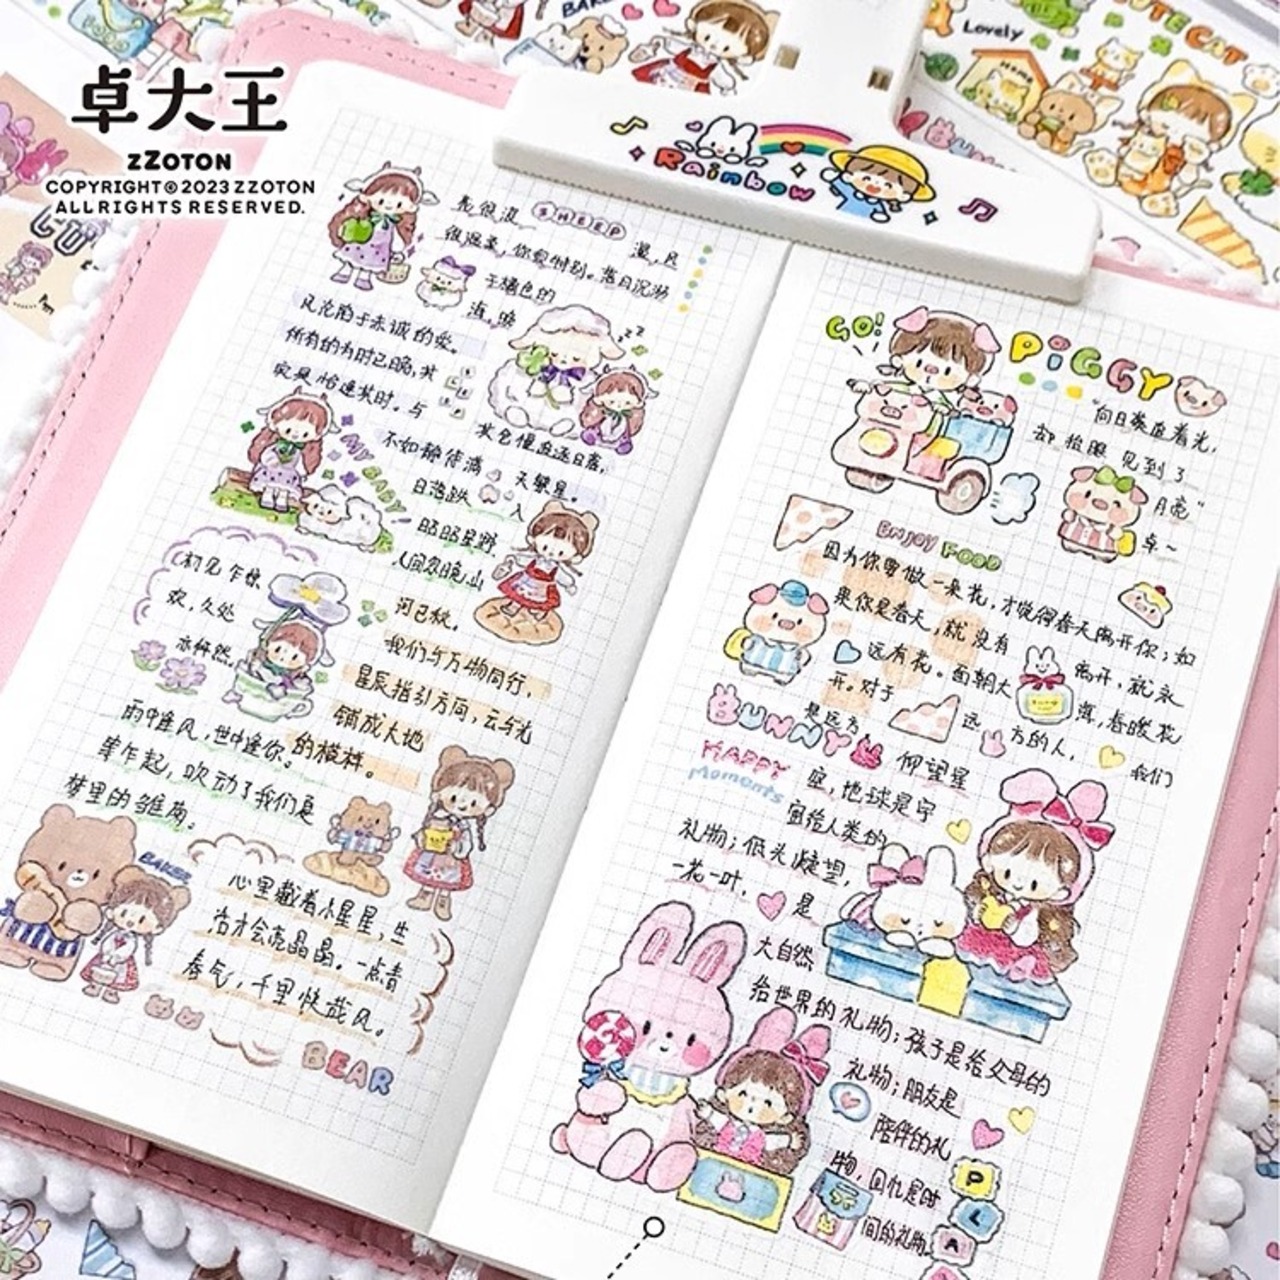 卓大王
ZZOTON
COPYRIGHT©2023 ZZOTON
ALL RIGHTS RESERVED.
Lovely
Home
CUTE CAT
Rainbow
我很浪 SHEEP 漫,风
很温柔,你很特别。落日沉溺
于橘色的
海,晚
风沦陷于赤诚的爱。
所有的为时已晚,其
实是恰逢其时。与
其仓惶追逐日落,
不如静待满 天繁星。
MY BABY
日落跌 入
昭昭星野,
人间忽晚,山
河已秋。
初见乍惊
欢,久处
亦怦然。
我们与万物同行,
星辰指引方向,云与光
铺成大地
的模样。
雨中逢风,世中逢你。
幸乍起,吹动了我们夏
梦里的雏菊。
BAKER
心里藏着小星星,生
活才会亮晶晶。一点青
春气,千里快哉风。
BEAR
GO! PIGGY
"向日葵追着光,
却抬眼见到了
月亮"
卓~
ENJOY FOOD
因为你要做一朵花,才觉得春天离开你;如
果你是春天,就没有 离开,就永
远有花。面朝大 海,春暖花
开。对于 远 方的人, 我们
是远方
BUNNY
HAPPY
Moments
仰望星
空,地球是宇
宙给人类的
礼物;低头瞭望,
一花一叶, 是
大自然
给世界的礼物;孩子是给父母的
礼物;朋友是
陪伴的礼
物,回忆是时
间的礼物
P
L
A